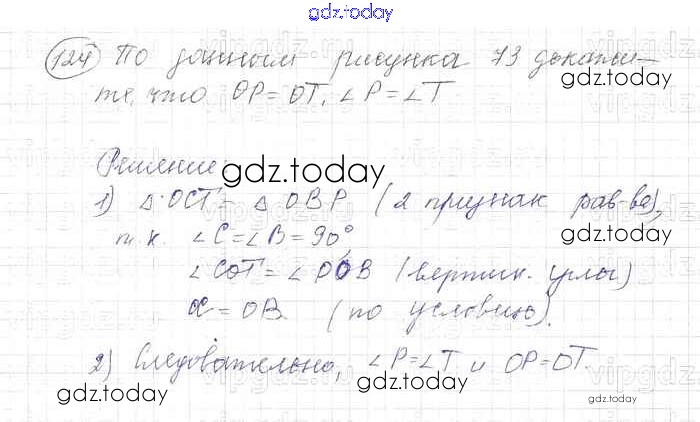 gdz.today
124 По данным рисунка 73 докажи-
те, что OP = OT, ∠P = ∠T
gdz.today
gdz.today
Решение:
gdz.today
1) △OCT = △OBP (2 признак рав-ва),
т.к. ∠C = ∠B = 90°,
gdz.today
∠COT = ∠POB (вертик. углы)
OC = OB (по условию).
2) Следовательно, ∠P = ∠T и OP = OT.
gdz.today
gdz.today
gdz.today